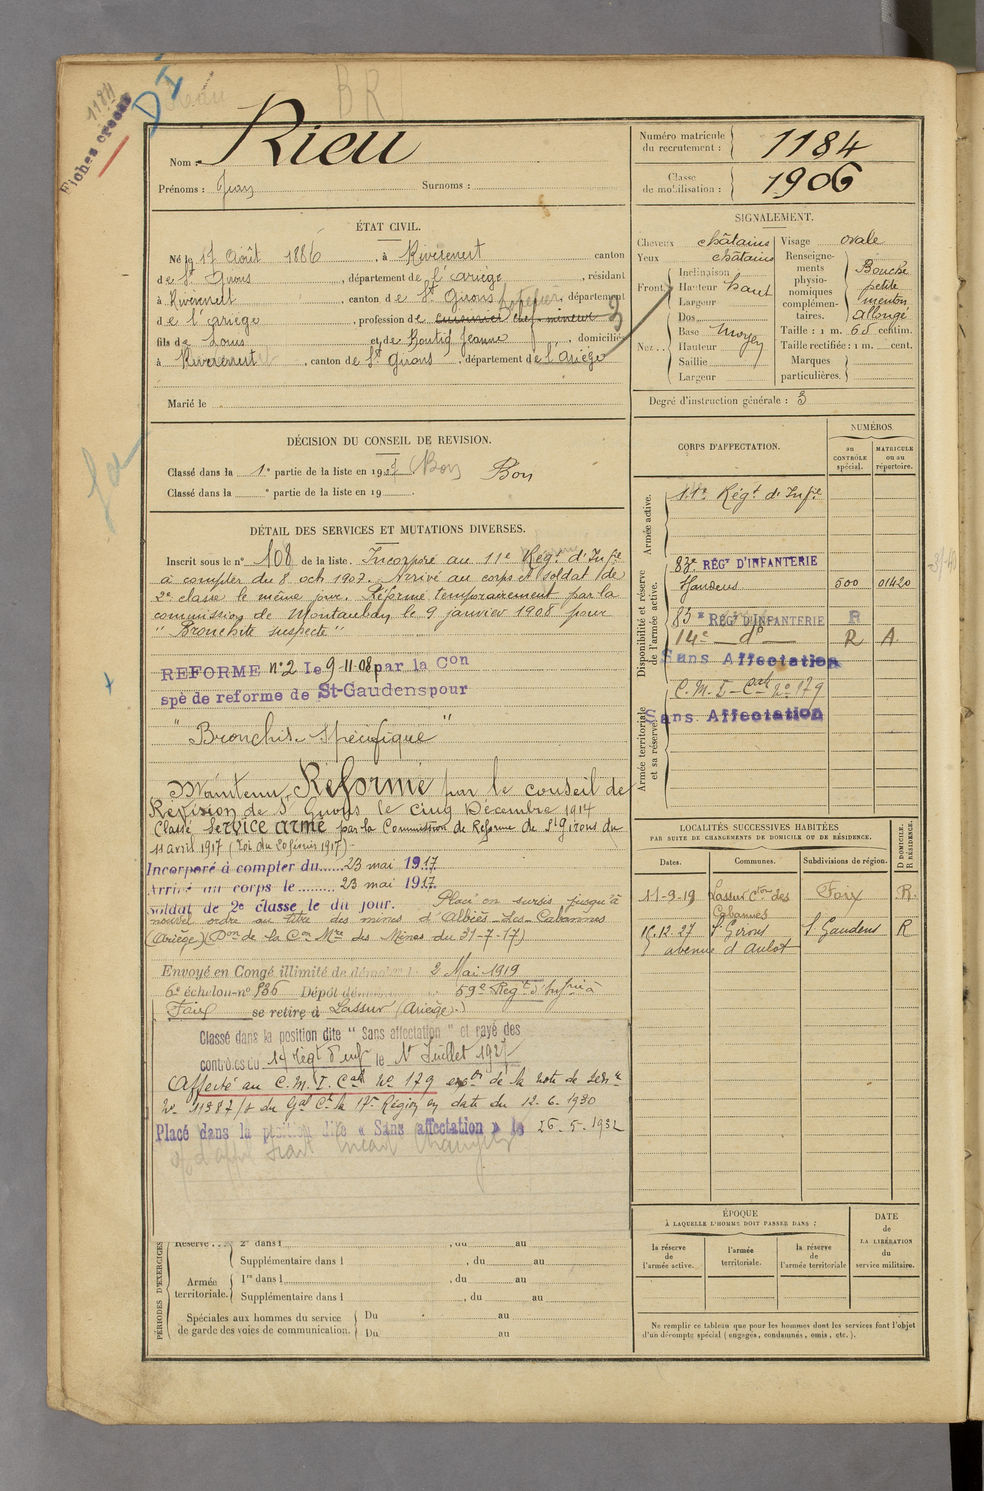 1184
Fiches
D I
BR
Nom : Rieu
Prénoms : Jean Surnoms :
Numéro matricule du recrutement : 1184
Classe de mobilisation : 1906
ÉTAT CIVIL.
Né le 17 Août 1886, à Riverenert canton
de St Girons, département de l'Ariège, résidant
à Riverenert, canton de St Girons, département
hôtelier
de l'Ariège, profession de cuisinier chef-mineur
fils de Louis et de Boutig Jeanne, domicilié
à Riverenert, canton de St Girons, département de l'Ariège
Marié le
SIGNALEMENT.
Cheveux châtains
Yeux châtains
Front Inclinaison
Hauteur haut
Largeur
Nez Dos
Base moyen
Hauteur
Saillie
Largeur
Visage ovale
Renseignements physionomiques complémentaires. Bouche petite menton allongé
Taille : 1 m. 65 centim.
Taille rectifiée : 1 m. cent.
Marques particulières.
Degré d'instruction générale : 3
DÉCISION DU CONSEIL DE REVISION.
Classé dans la 1e partie de la liste en 1907 (Bon) Bon
Classé dans la e partie de la liste en 19
DÉTAIL DES SERVICES ET MUTATIONS DIVERSES.
Inscrit sous le n° 108 de la liste. Incorporé au 11e Régt d'Infie
à compter du 8 oct 1907. Arrivé au corps et soldat de
2e classe le même jour. Réformé temporairement par la
commission de Montauban le 9 janvier 1908 pour
"Bronchite suspecte"
REFORME n° 2 le 9-11-08 par la Con
spé de reforme de St-Gaudens pour
"Bronchite spécifique"
Maintenu Réformé par le conseil de
Révision de St Girons le cinq Décembre 1914
Classé service armé par la Commission de Réforme de St Girons du
11 avril 1917 (Loi du 20 février 1917)
Incorporé à compter du 23 mai 1917
Arrivé au corps le 23 mai 1917
Soldat de 2e classe le dit jour. Placé en sursis jusqu'à
nouvel ordre au titre des mines d'Albiès-Les-Cabannes
(Ariège) (Don de la Con Mre des Mines du 31-7-17)
Envoyé en Congé illimité de 2 Mai 1919
6e échelon n° 836 Dépôt 59e Régt d'Infrie à
Foix se retire à Lassur (Ariège)
Classé dans la position dite "Sans affectation" et rayé des
contrôles du 14 Régt d'inf le 1er Juillet 1927
Affecté au C.M.I. Cat N° 179 exon de la note de service
N° 11387/ du Gal Ct la 17e Région en date du 12-6-1930
Placé dans la position dite « Sans affectation » le 26-5-1932
CORPS D'AFFECTATION.
NUMÉROS
au CONTRÔLE spécial.
MATRICULE ou au répertoire.
Armée active.
11e Régt d'Infie
Disponibilité et réserve de l'armée active.
83e RÉGT D'INFANTERIE
St Gaudens 600 01420
83e RÉGT D'INFANTERIE R
14e do R A
Sans Affectation
Armée territoriale et sa réserve.
C.M.I - Cat n° 179
Sans Affectation
LOCALITÉS SUCCESSIVES HABITÉES
PAR SUITE DE CHANGEMENTS DE DOMICILE OU DE RÉSIDENCE.
D DOMICILE. R RÉSIDENCE.
Dates. Communes. Subdivisions de région.
11-9-19 Lassur Cton des Cabannes Foix R.
15.12.27 St Girons St Gaudens R
avenue d'Aulot
ÉPOQUE
À LAQUELLE L'HOMME DOIT PASSER DANS :
la réserve de l'armée active.
l'armée territoriale.
la réserve de l'armée territoriale
DATE de LA LIBÉRATION du service militaire.
Ne remplir ce tableau que pour les hommes dont les services font l'objet
d'un décompte spécial (engagés, condamnés, omis, etc.).
PÉRIODES D'EXERCICES
Réserve 2e dans l , du au
Supplémentaire dans l , du au
Armée territoriale. 1re dans l , du au
Supplémentaire dans l , du au
Spéciales aux hommes du service de garde des voies de communication. Du au
Du au